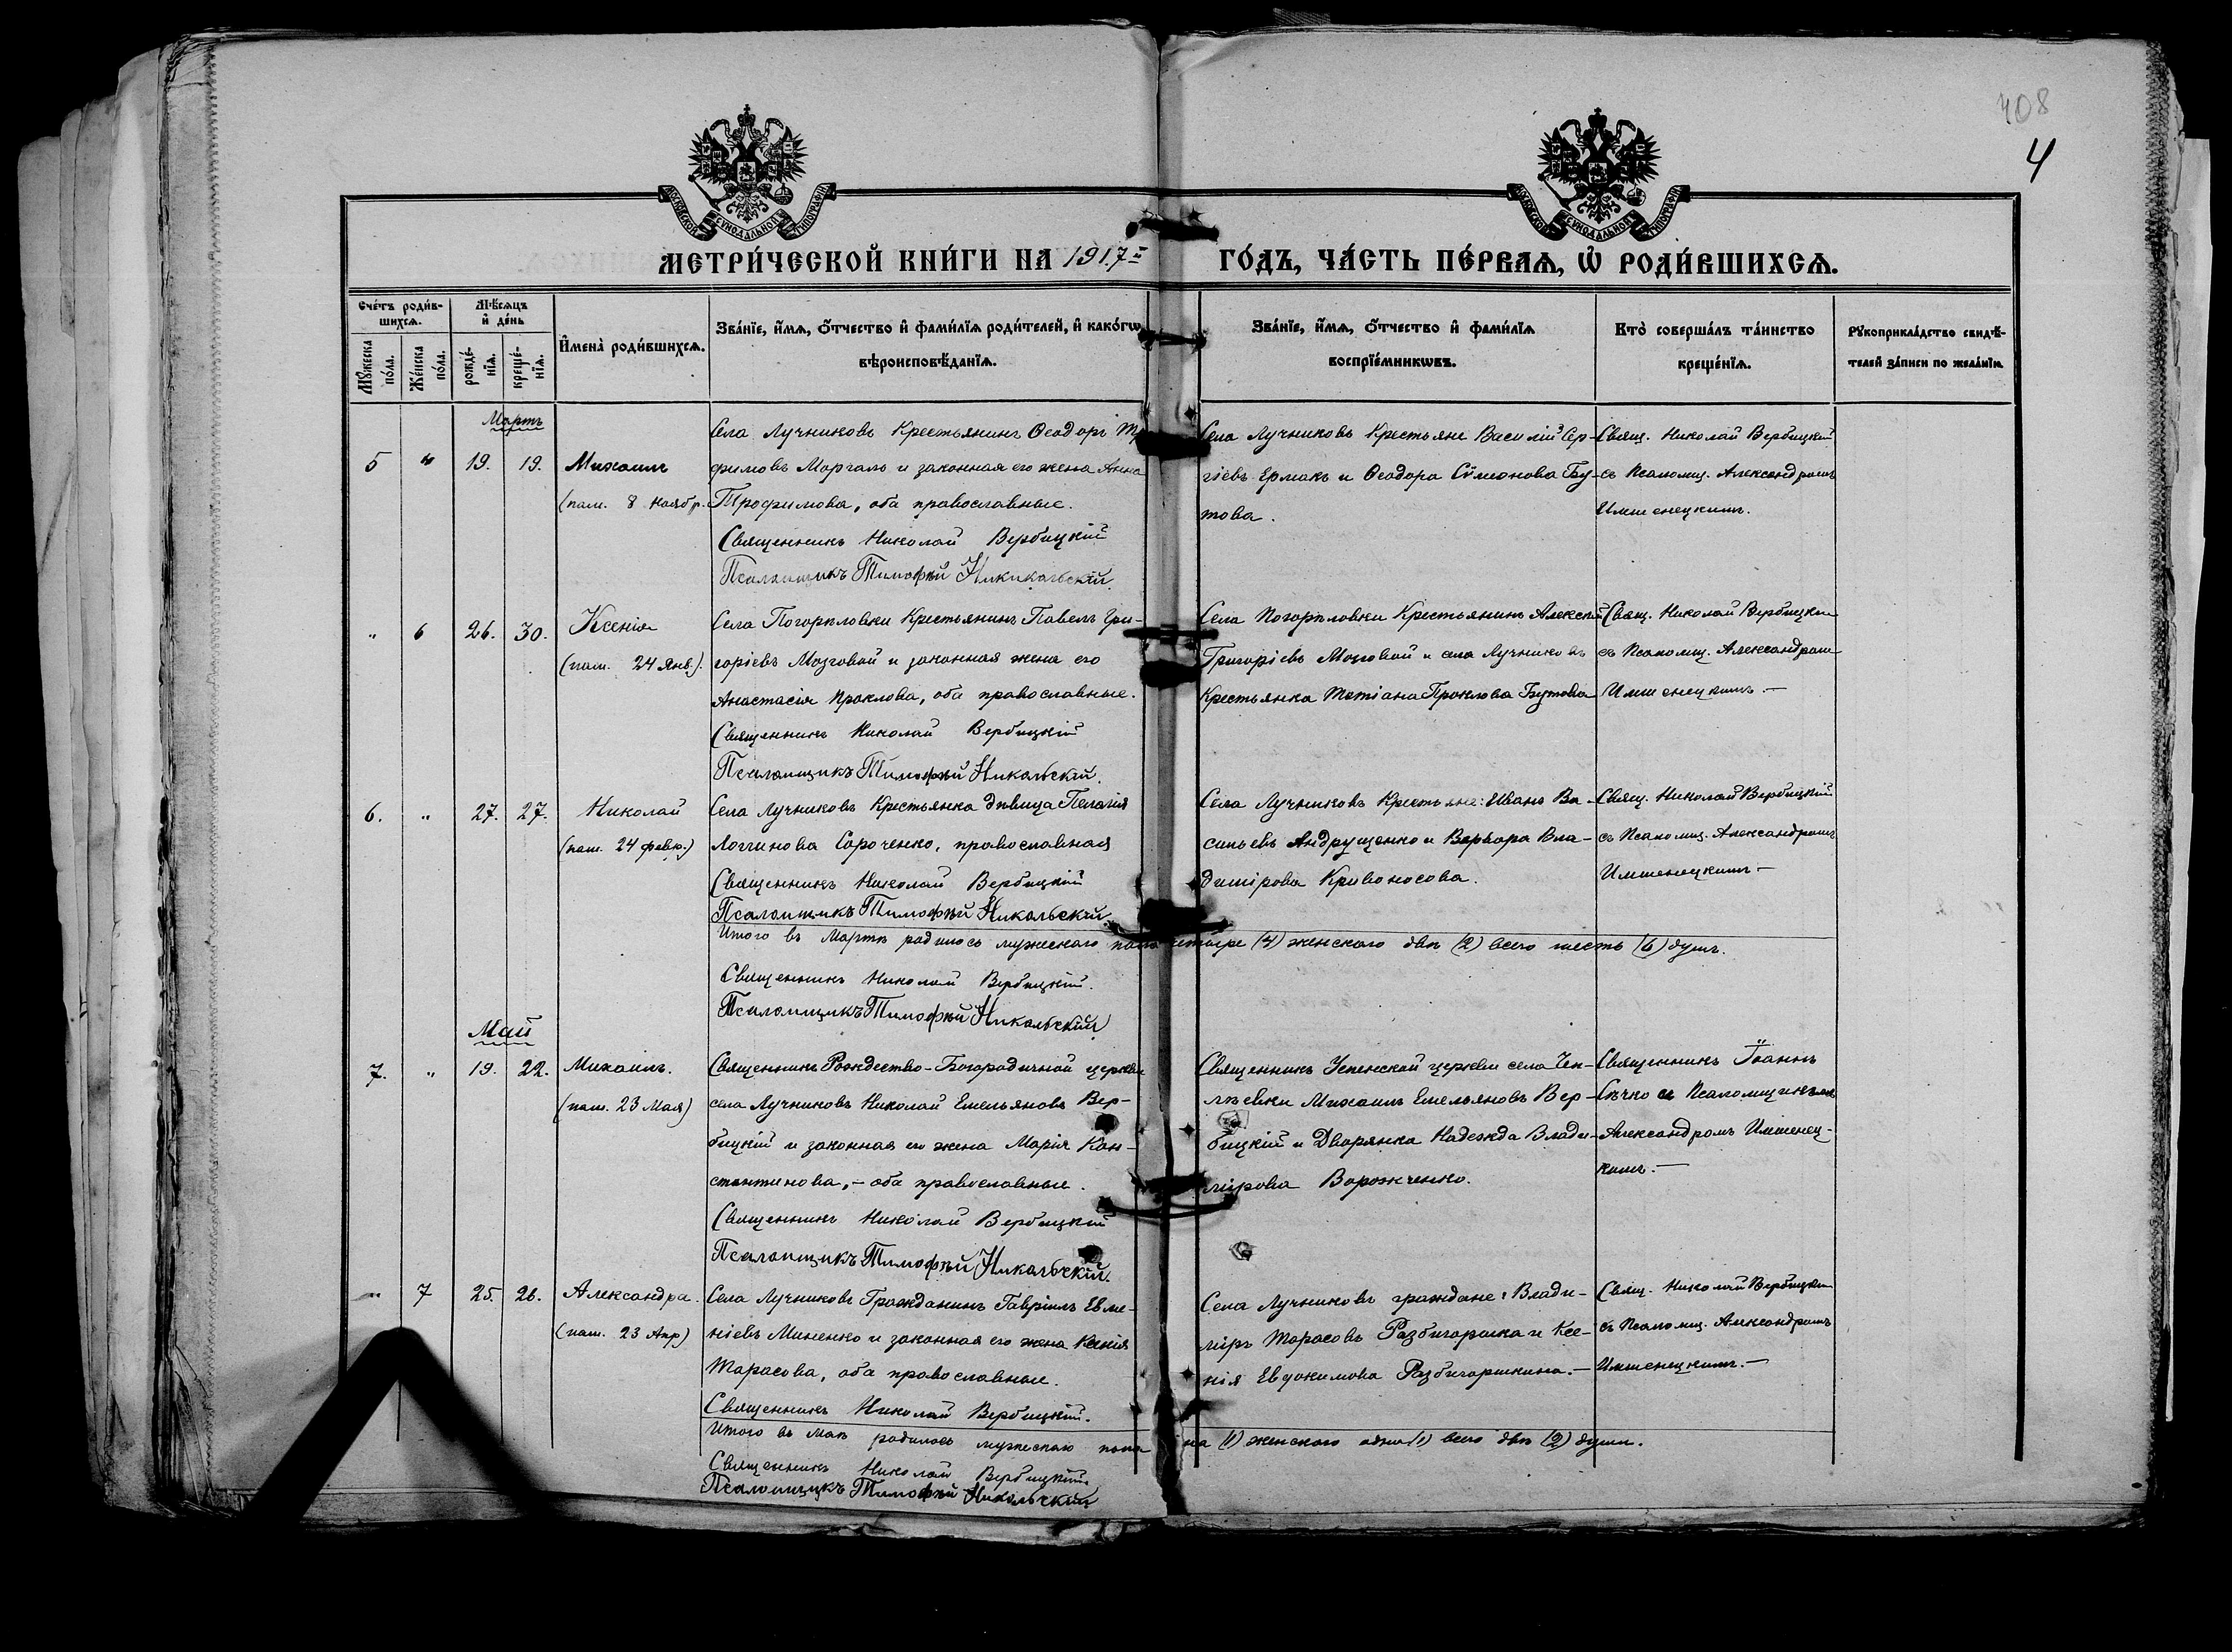 408
4
МОСКОВСКОЙ СѴНОДАЛЬНОЙ ТИПОГРАФІИ
МОСКОВСКОЙ СѴНОДАЛЬНОЙ ТИПОГРАФІИ
МЕТРИ́ЧЕСКОЙ КНИ́ГИ НА 1917й ГО́ДЪ, ЧА́СТЬ ПЕ́РВАѦ, Ѡ҆ РОДИ́ВШИХСѦ.
Сче́тъ роди́в-
шихсѧ.
Мѣ́сѧцъ
и҆ де́нь
Мꙋ́жеска
по́ла.
Же́нска
по́ла.
рожде́-
нїѧ.
креще́-
нїѧ.
И҆мена̀ роди́вшихсѧ.
Зва́нїе, и҆́мѧ, ѻ҆́тчество и҆ фами́лїѧ роди́телей, и҆ како́гѡ
вѣроисповѣ́данїѧ.
Зва́нїе, и҆́мѧ, ѻ҆́тчество и҆ фами́лїѧ
воспрїе́мникѡвъ.
Кто̀ соверша́лъ та́инство
креще́нїѧ.
Рꙋкоприкла́дство свидѣ́-
телей за́писи по жела́нїю.
Мартъ
5 " 19. 19. Михаилъ
(пам. 8 Ноябр.
Села Лучниковъ Крестьянинъ Ѳеодоръ
фимовъ Маргаль и законная его жена Анна
Трофимова, оба православные.
Священникъ Николай Вербицкій
Псаломщикъ Тимофѣй
Села Лучниковъ Крестьяне Василій Сер-
гіевъ Ермакъ и Ѳеодора Сѵмеонова Бу-
това.
Свящ. Николай Вербицкій
съ Псаломщ. Александромъ
Имшенецкимъ.
" 6 26. 30. Ксенія
(пам. 24 Янв.).
Села Погорѣловки Крестьянинъ Павелъ Гри-
горіевъ Мозговой и законная жена его
Анастасія Проклова, оба православные.
Священникъ Николай Вербицкій
Псаломщикъ Тимофѣй Никольскій.
Села Погорѣловки Крестьянинъ Алексѣй
Григоріевъ Мозговой и села Лучниковъ
Крестьянка Татіана Проклова Бутова
Свящ. Николай Вербицкій
съ Псаломщ. Александромъ
Имшенецкимъ. —
6. " 27. 27. Николай
(пам. 24 февр.)
Села Лучниковъ Крестьянка дѣвица Пелагія
Логгинова Сороченко, православная
Священникъ Николай Вербицкій
Псаломщикъ Тимофѣй Никольскій
Села Лучниковъ Крестьяне: Иванъ Ва-
сильевъ Андрущенко и Варвара Вла-
димірова Кривоносова.
Свящ. Николай Вербицкій
съ Псаломщ. Александромъ
Имшенецкимъ —
Итого въ Мартѣ родилось мужескаго пола четыре (4) женского двѣ (2) всего шесть (6) душъ.
Священникъ Николай Вербицкій.
Псаломщикъ Тимофѣй Никольскій
Май
7. " 19. 22. Михаилъ.
(пам. 23 Мая)
Священникъ Рождество-Богородичной церкви
села Лучниковъ Николай Емельяновъ Вер-
бицкій и законная его жена Марія Кон-
стантинова, – оба православные.
Священникъ Николай Вербицкій
Псаломщикъ Тимофѣй Никольскій.
Священникъ Успенской церкви села
Михаилъ Емельяновъ Вер-
бицкій и Дворянка Надежда Влади-
мірова Ворожченко.
Священникъ Іоаннъ
съ Псаломщикомъ
Александромъ Имшенец-
кимъ. —
" 7 25. 26. Александра.
(пам. 23 Апр)
Села Лучниковъ Гражданинъ Гавріилъ Евме-
ніевъ Миненко и законная его жена Ксенія
Тарасова, оба православные.
Священникъ Николай Вербицкій.
Села Лучниковъ граждане: Влади-
міръ Тарасовъ Разбигорашка и Ксе-
нія Евдокимова Разбигорашкина. —
Свящ. Николай Вербицкій
съ Псаломщ. Александромъ
Имшенецкимъ. —
Итого въ Маѣ родилось мужескаго пола на (1) женскаго одна (1) всего двѣ (2) души.
Священникъ Николай Вербицкій
Псаломщикъ Тимофѣй Никольскій